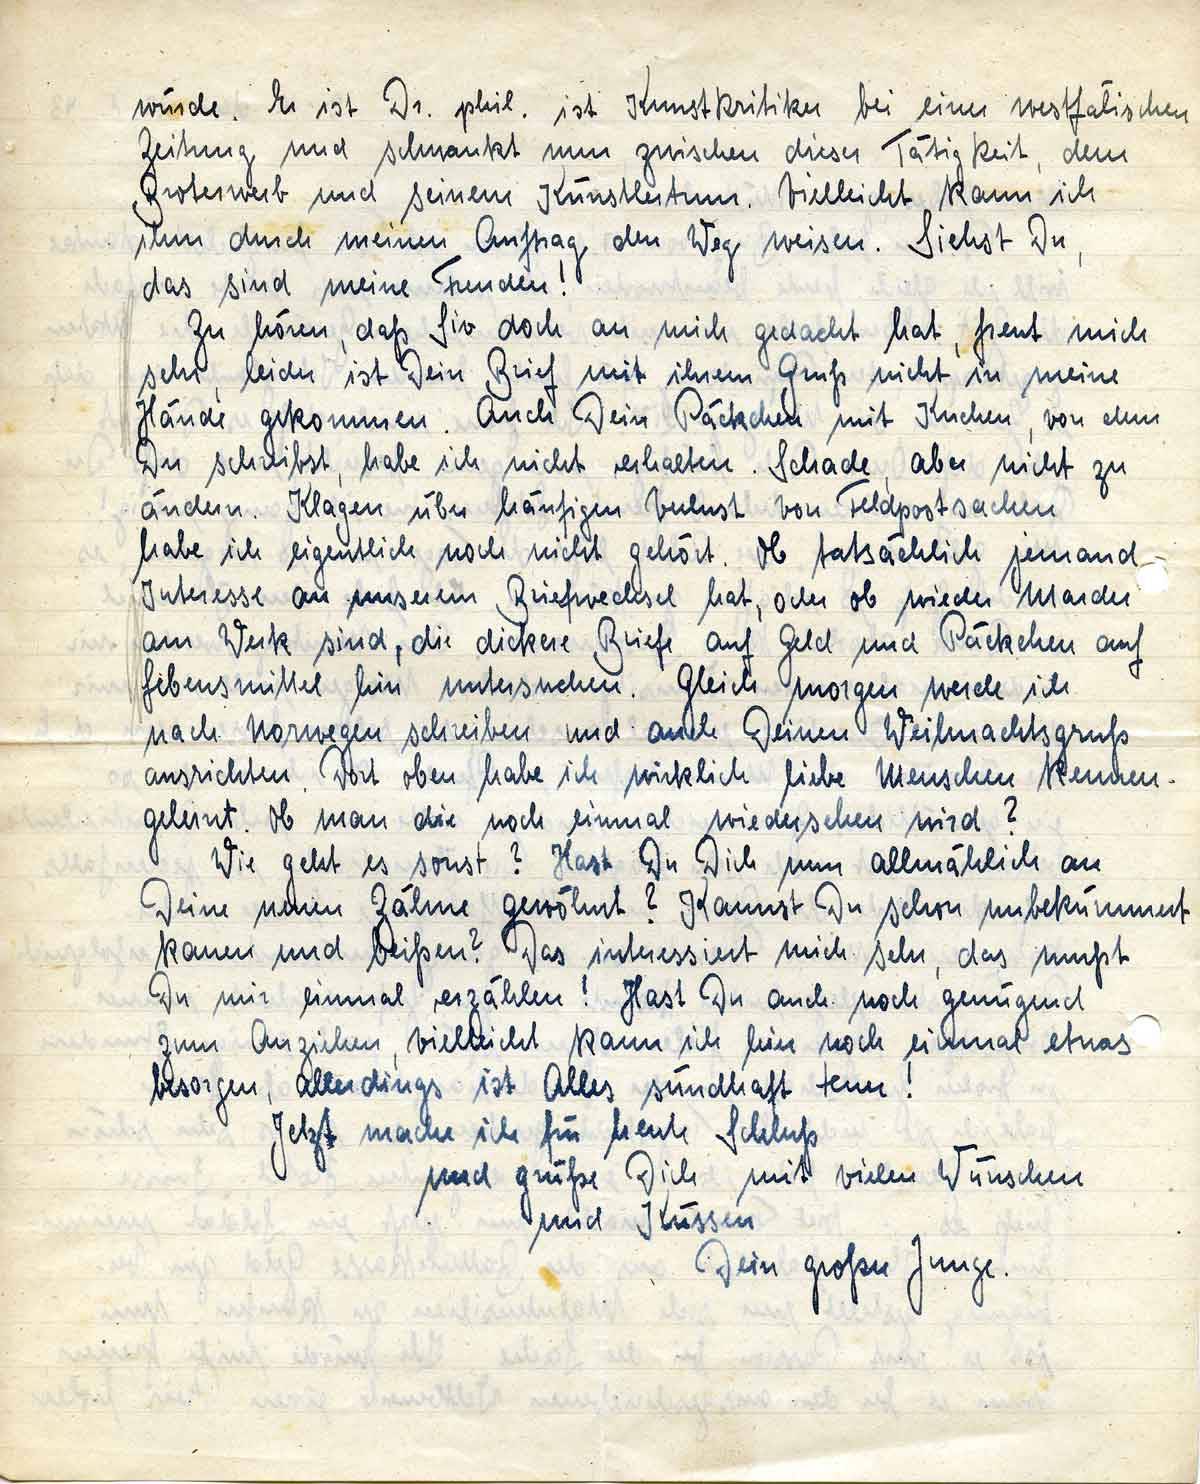 würde. Er ist Dr. phil. ist Kunstkritiker bei einer westfälischen
Zeitung und schwankt nun zwischen dieser Tätigkeit, dem
Broterwerb und seinem Künstlertum. Vielleicht kann ich
ihm durch meinen Auftrag den Weg weisen. Siehst Du,
das sind meine Freuden!
Zu hören, daß Siv doch an mich gedacht hat, freut mich
sehr, leider ist Dein Brief mit ihrem Gruß nicht in meine
Hände gekommen. Auch Dein Päckchen mit Kuchen, von dem
Du schreibst, habe ich nicht erhalten. Schade, aber nicht zu
ändern. Klagen über häufigen Verlust von Feldpostsachen
habe ich eigentlich noch nicht gehört. Ob tatsächlich jemand
Interesse an unserem Briefwechsel hat, oder ob wieder Marder
am Werk sind, die dickere Briefe auf Geld und Päckchen auf
Lebensmittel hin untersuchen. Gleich morgen werde ich
nach Norwegen schreiben und auch Deinen Weihnachtsgruß
ausrichten. Dort oben habe ich wirklich liebe Menschen kennen-
gelernt. Ob man die noch einmal wiedersehen wird?
Wie geht es sonst? Hast Du Dich nun allmählich an
Deine neuen Zähne gewöhnt? Kannst Du schon unbekümmert
kauen und beißen? Das interessiert mich sehr, das mußt
Du mir einmal erzählen! Hast Du auch noch genügend
zum Anziehen, vielleicht kann ich hier noch einmal etwas
besorgen, allerdings ist Alles sündhaft teuer!
Jetzt mache ich für heute Schluß
und grüße Dich mit vielen Wünschen
und Küssen
Dein großer Junge.